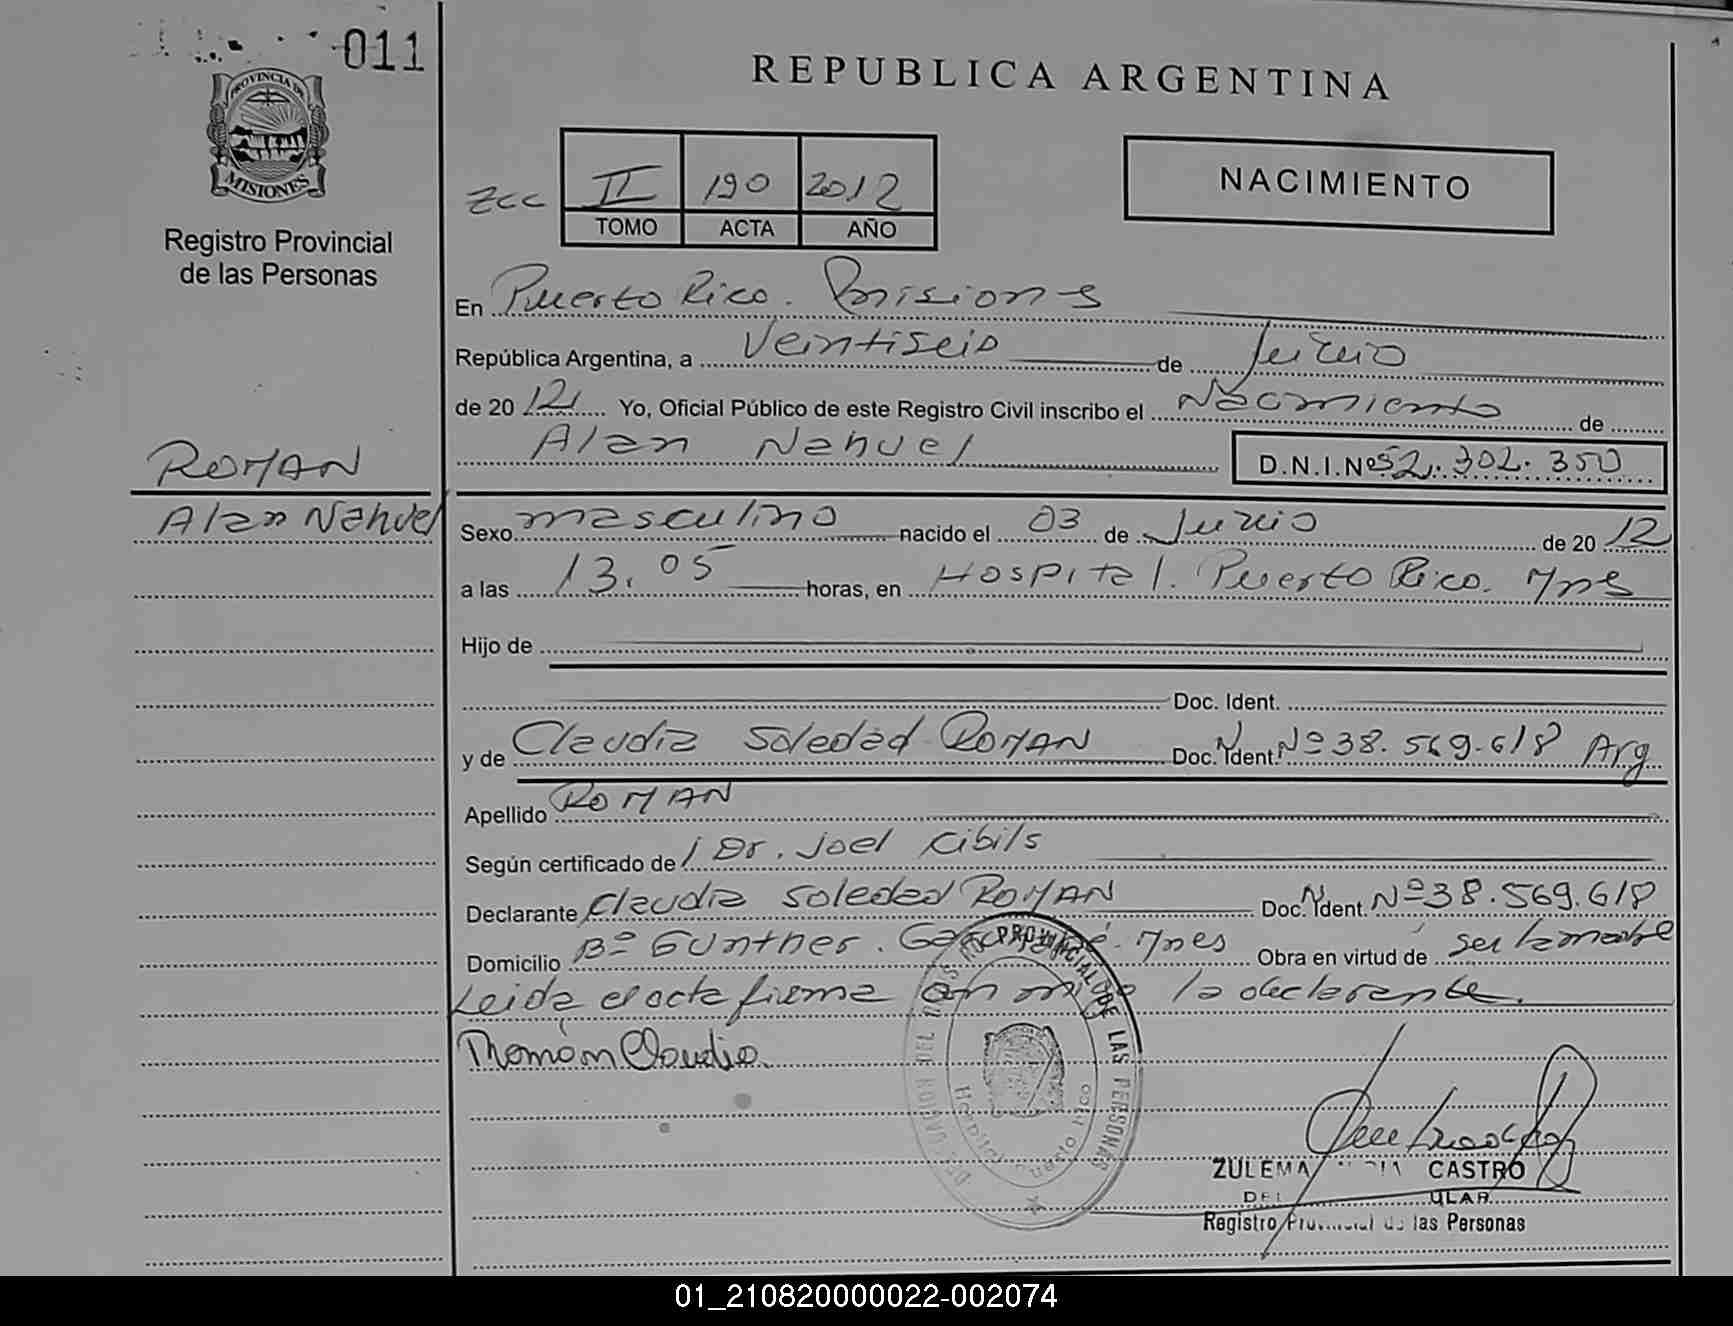 011
REPUBLICA ARGENTINA
PROVINCIA DE
MISIONES
Registro Provincial
de las Personas
zcc II 190 2012
TOMO ACTA AÑO
NACIMIENTO
En Puerto Rico. Misiones
República Argentina, a Veintiseis de Junio
de 2012 Yo, Oficial Público de este Registro Civil inscribo el Nacimiento de
Alan Nahuel D.N.I.Nº 52.302.350
ROMAN
Alan Nahuel
Sexo masculino nacido el 03 de Junio de 2012
a las 13.05 horas, en Hospital. Puerto Rico. Mnes
Hijo de
Doc. Ident.
y de Claudia Soledad ROMAN Doc. Ident. Nº 38.569.618 Arg
Apellido ROMAN
Según certificado de Dr. Joel Cibils
Declarante Claudia Soledad ROMAN Doc. Ident. Nº 38.569.618
Domicilio Bº Gunther. Mnes Obra en virtud de ser la madre
Leida el acta firma con migo la declarante.
Claudia
PROVINCIAL DE LAS PERSONAS
Hospital Puerto Rico
ZULEMA CASTRO
Registro Provincial de las Personas
01_210820000022-002074